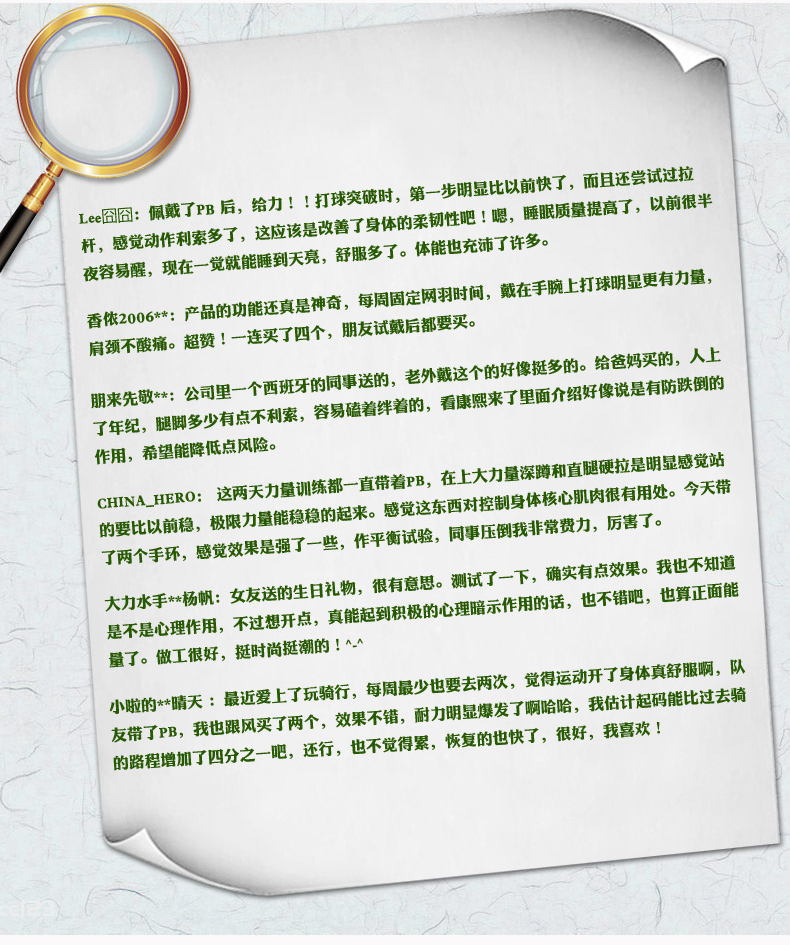 Lee囧囧：佩戴了PB 后，给力！！打球突破时，第一步明显比以前快了，而且还尝试过拉
杆，感觉动作利索多了，这应该是改善了身体的柔韧性吧！嗯，睡眠质量提高了，以前很半
夜容易醒，现在一觉就能睡到天亮，舒服多了。体能也充沛了许多。
香侬2006**：产品的功能还真是神奇，每周固定网羽时间，戴在手腕上打球明显更有力量，
肩颈不酸痛。超赞！一连买了四个，朋友试戴后都要买。
朋来先敬**：公司里一个西班牙的同事送的，老外戴这个的好像挺多的。给爸妈买的，人上
了年纪，腿脚多少有点不利索，容易磕着绊着的，看康熙来了里面介绍好像说是有防跌倒的
作用，希望能降低点风险。
CHINA_HERO： 这两天力量训练都一直带着PB，在上大力量深蹲和直腿硬拉是明显感觉站
的要比以前稳，极限力量能稳稳的起来。感觉这东西对控制身体核心肌肉很有用处。今天带
了两个手环，感觉效果是强了一些，作平衡试验，同事压倒我非常费力，厉害了。
大力水手**杨帆：女友送的生日礼物，很有意思。测试了一下，确实有点效果。我也不知道
是不是心理作用，不过想开点，真能起到积极的心理暗示作用的话，也不错吧，也算正面能
量了。做工很好，挺时尚挺潮的！^-^
小啦的**晴天 ：最近爱上了玩骑行，每周最少也要去两次，觉得运动开了身体真舒服啊，队
友带了PB，我也跟风买了两个，效果不错，耐力明显爆发了啊哈哈，我估计起码能比过去骑
的路程增加了四分之一吧，还行，也不觉得累，恢复的也快了，很好，我喜欢！